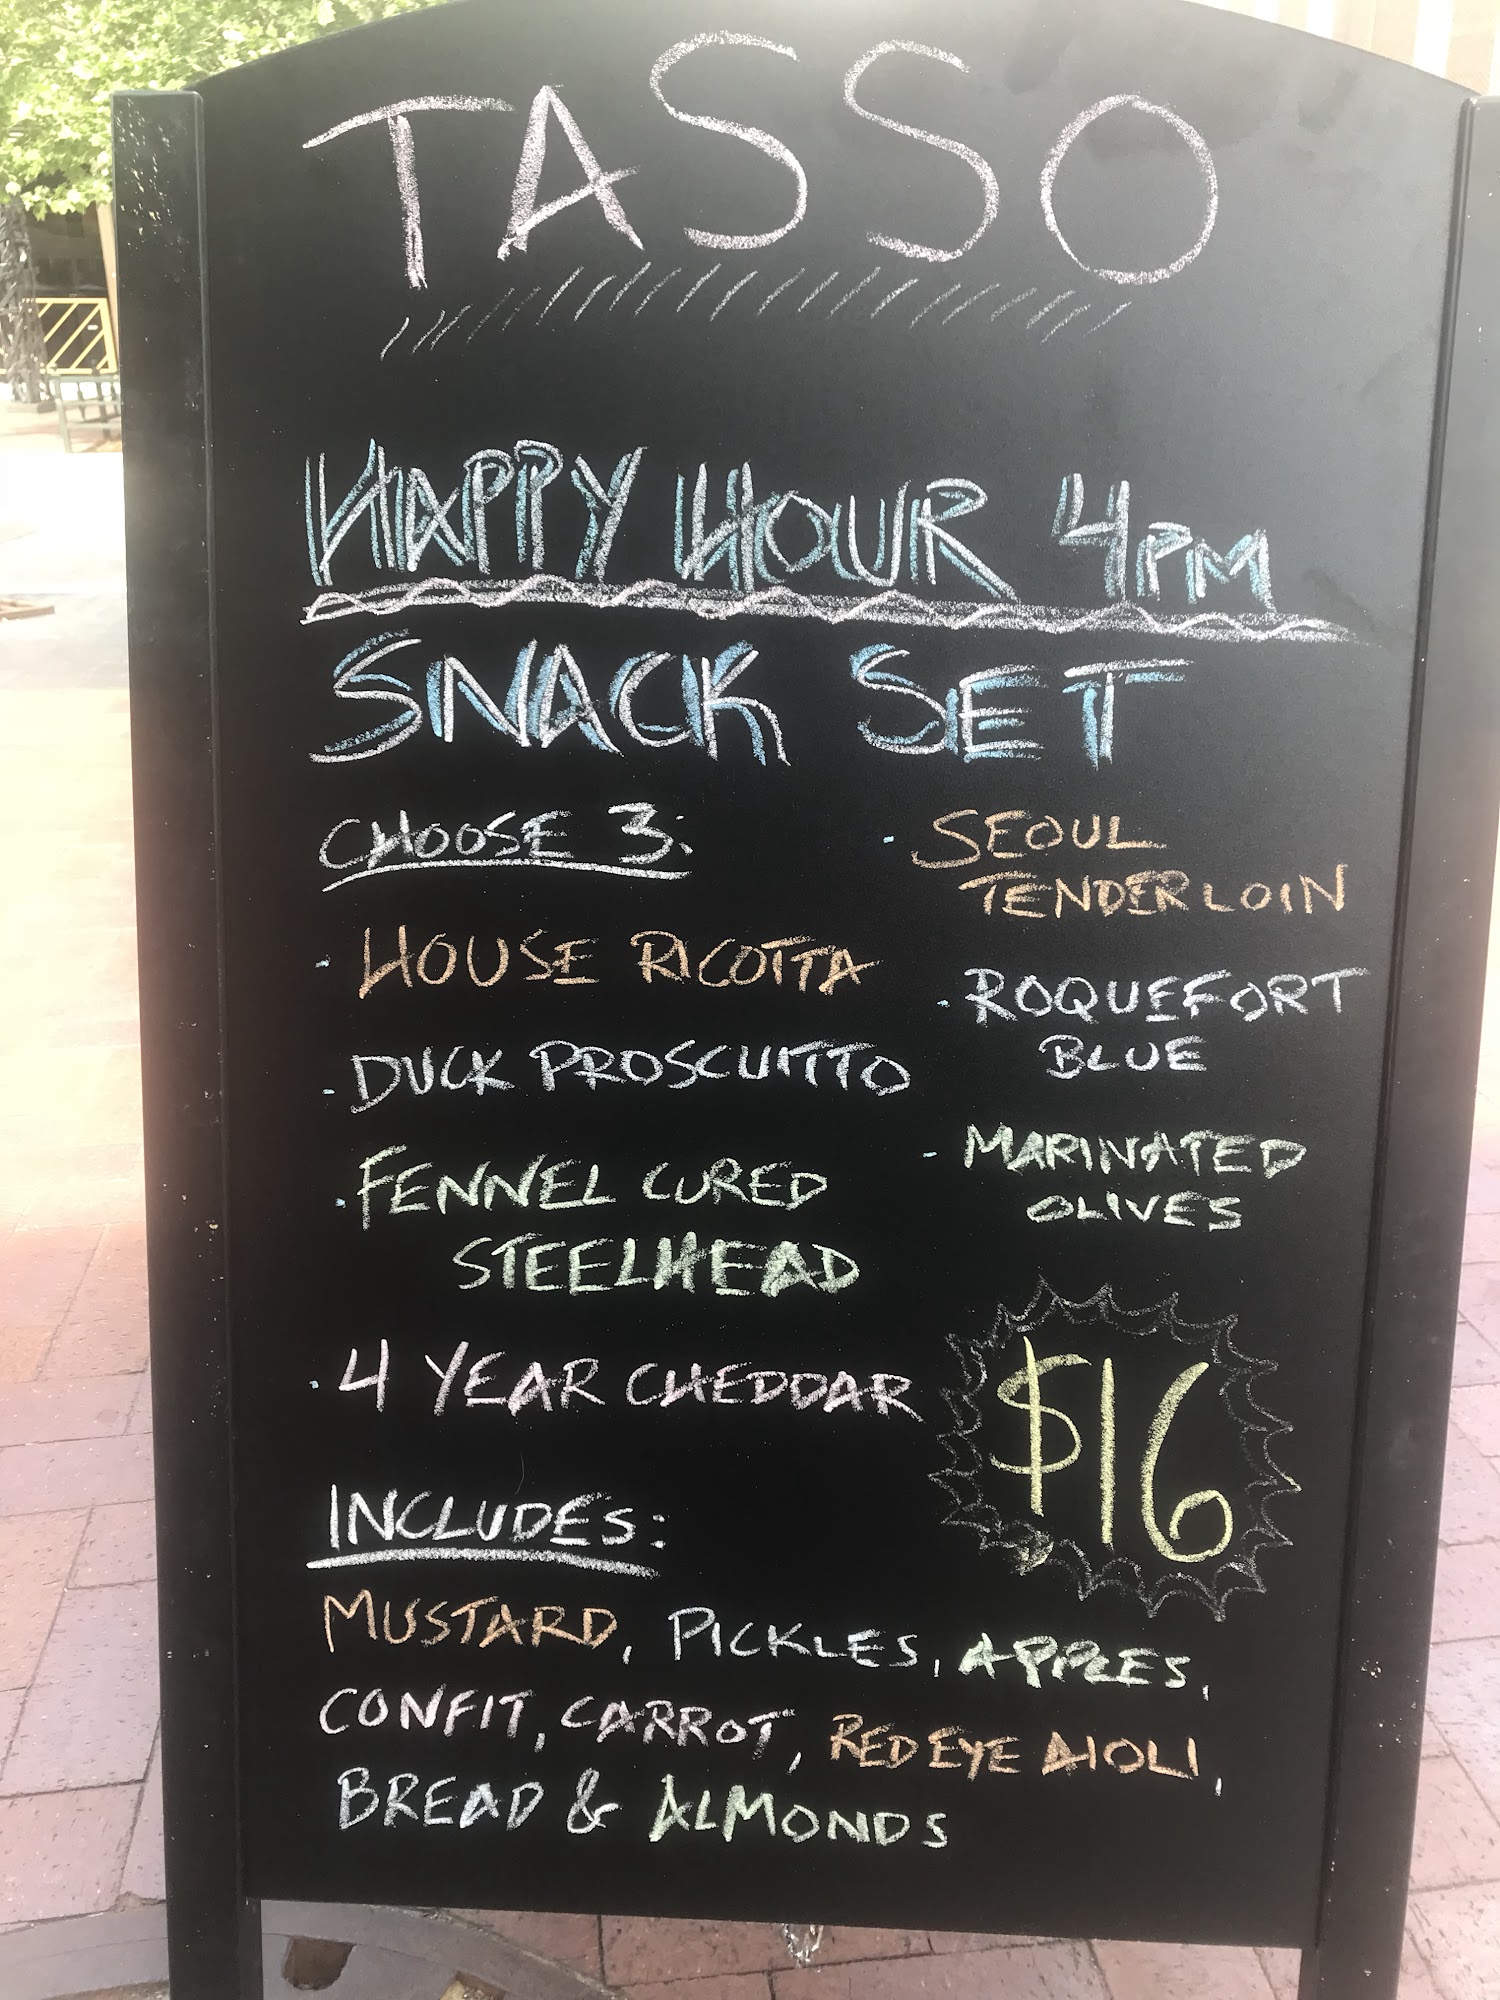 TASSO
HAPPY HOUR 4PM
SNACK SET
CHOOSE 3:
· HOUSE RICOTTA
· DUCK PROSCUITTO
· FENNEL CURED
STEELHEAD
· 4 YEAR CHEDDAR
· SEOUL
TENDERLOIN
· ROQUEFORT
BLUE
· MARINATED
OLIVES
$16
INCLUDES:
MUSTARD, PICKLES, APPLES,
CONFIT, CARROT, RED EYE AIOLI,
BREAD & ALMONDS